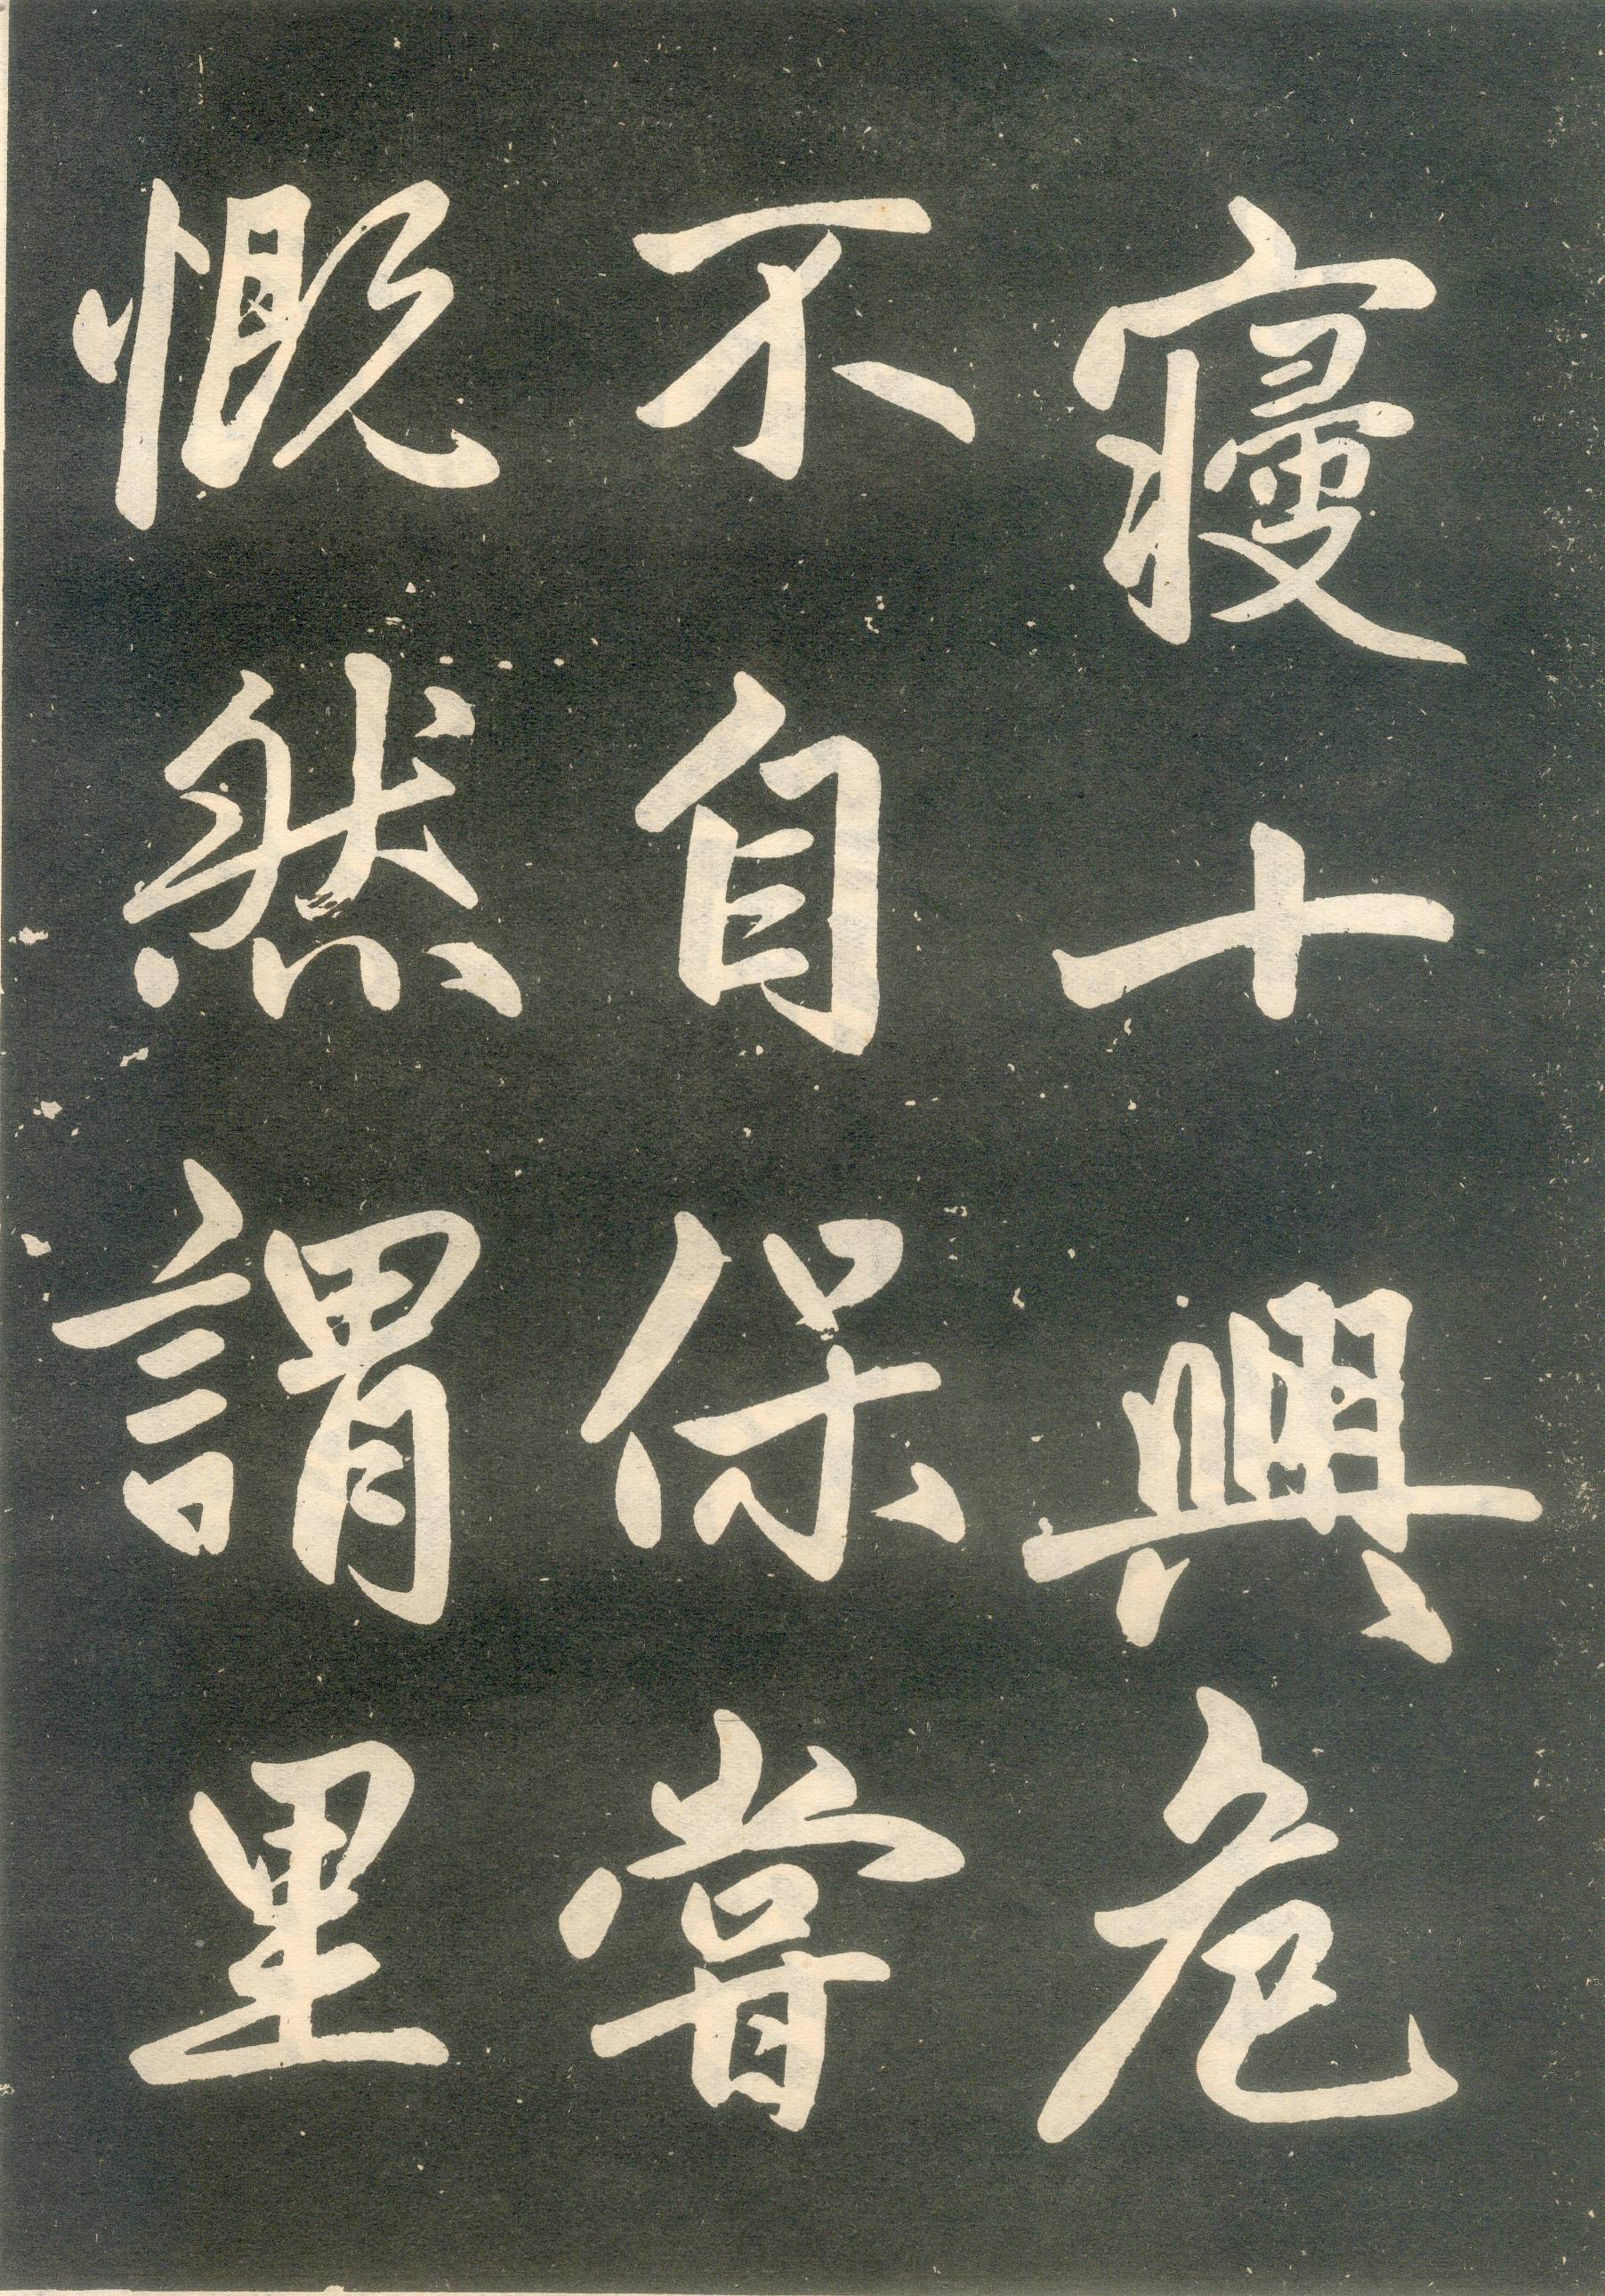 寑十興危
不自保甞
慨然謂里